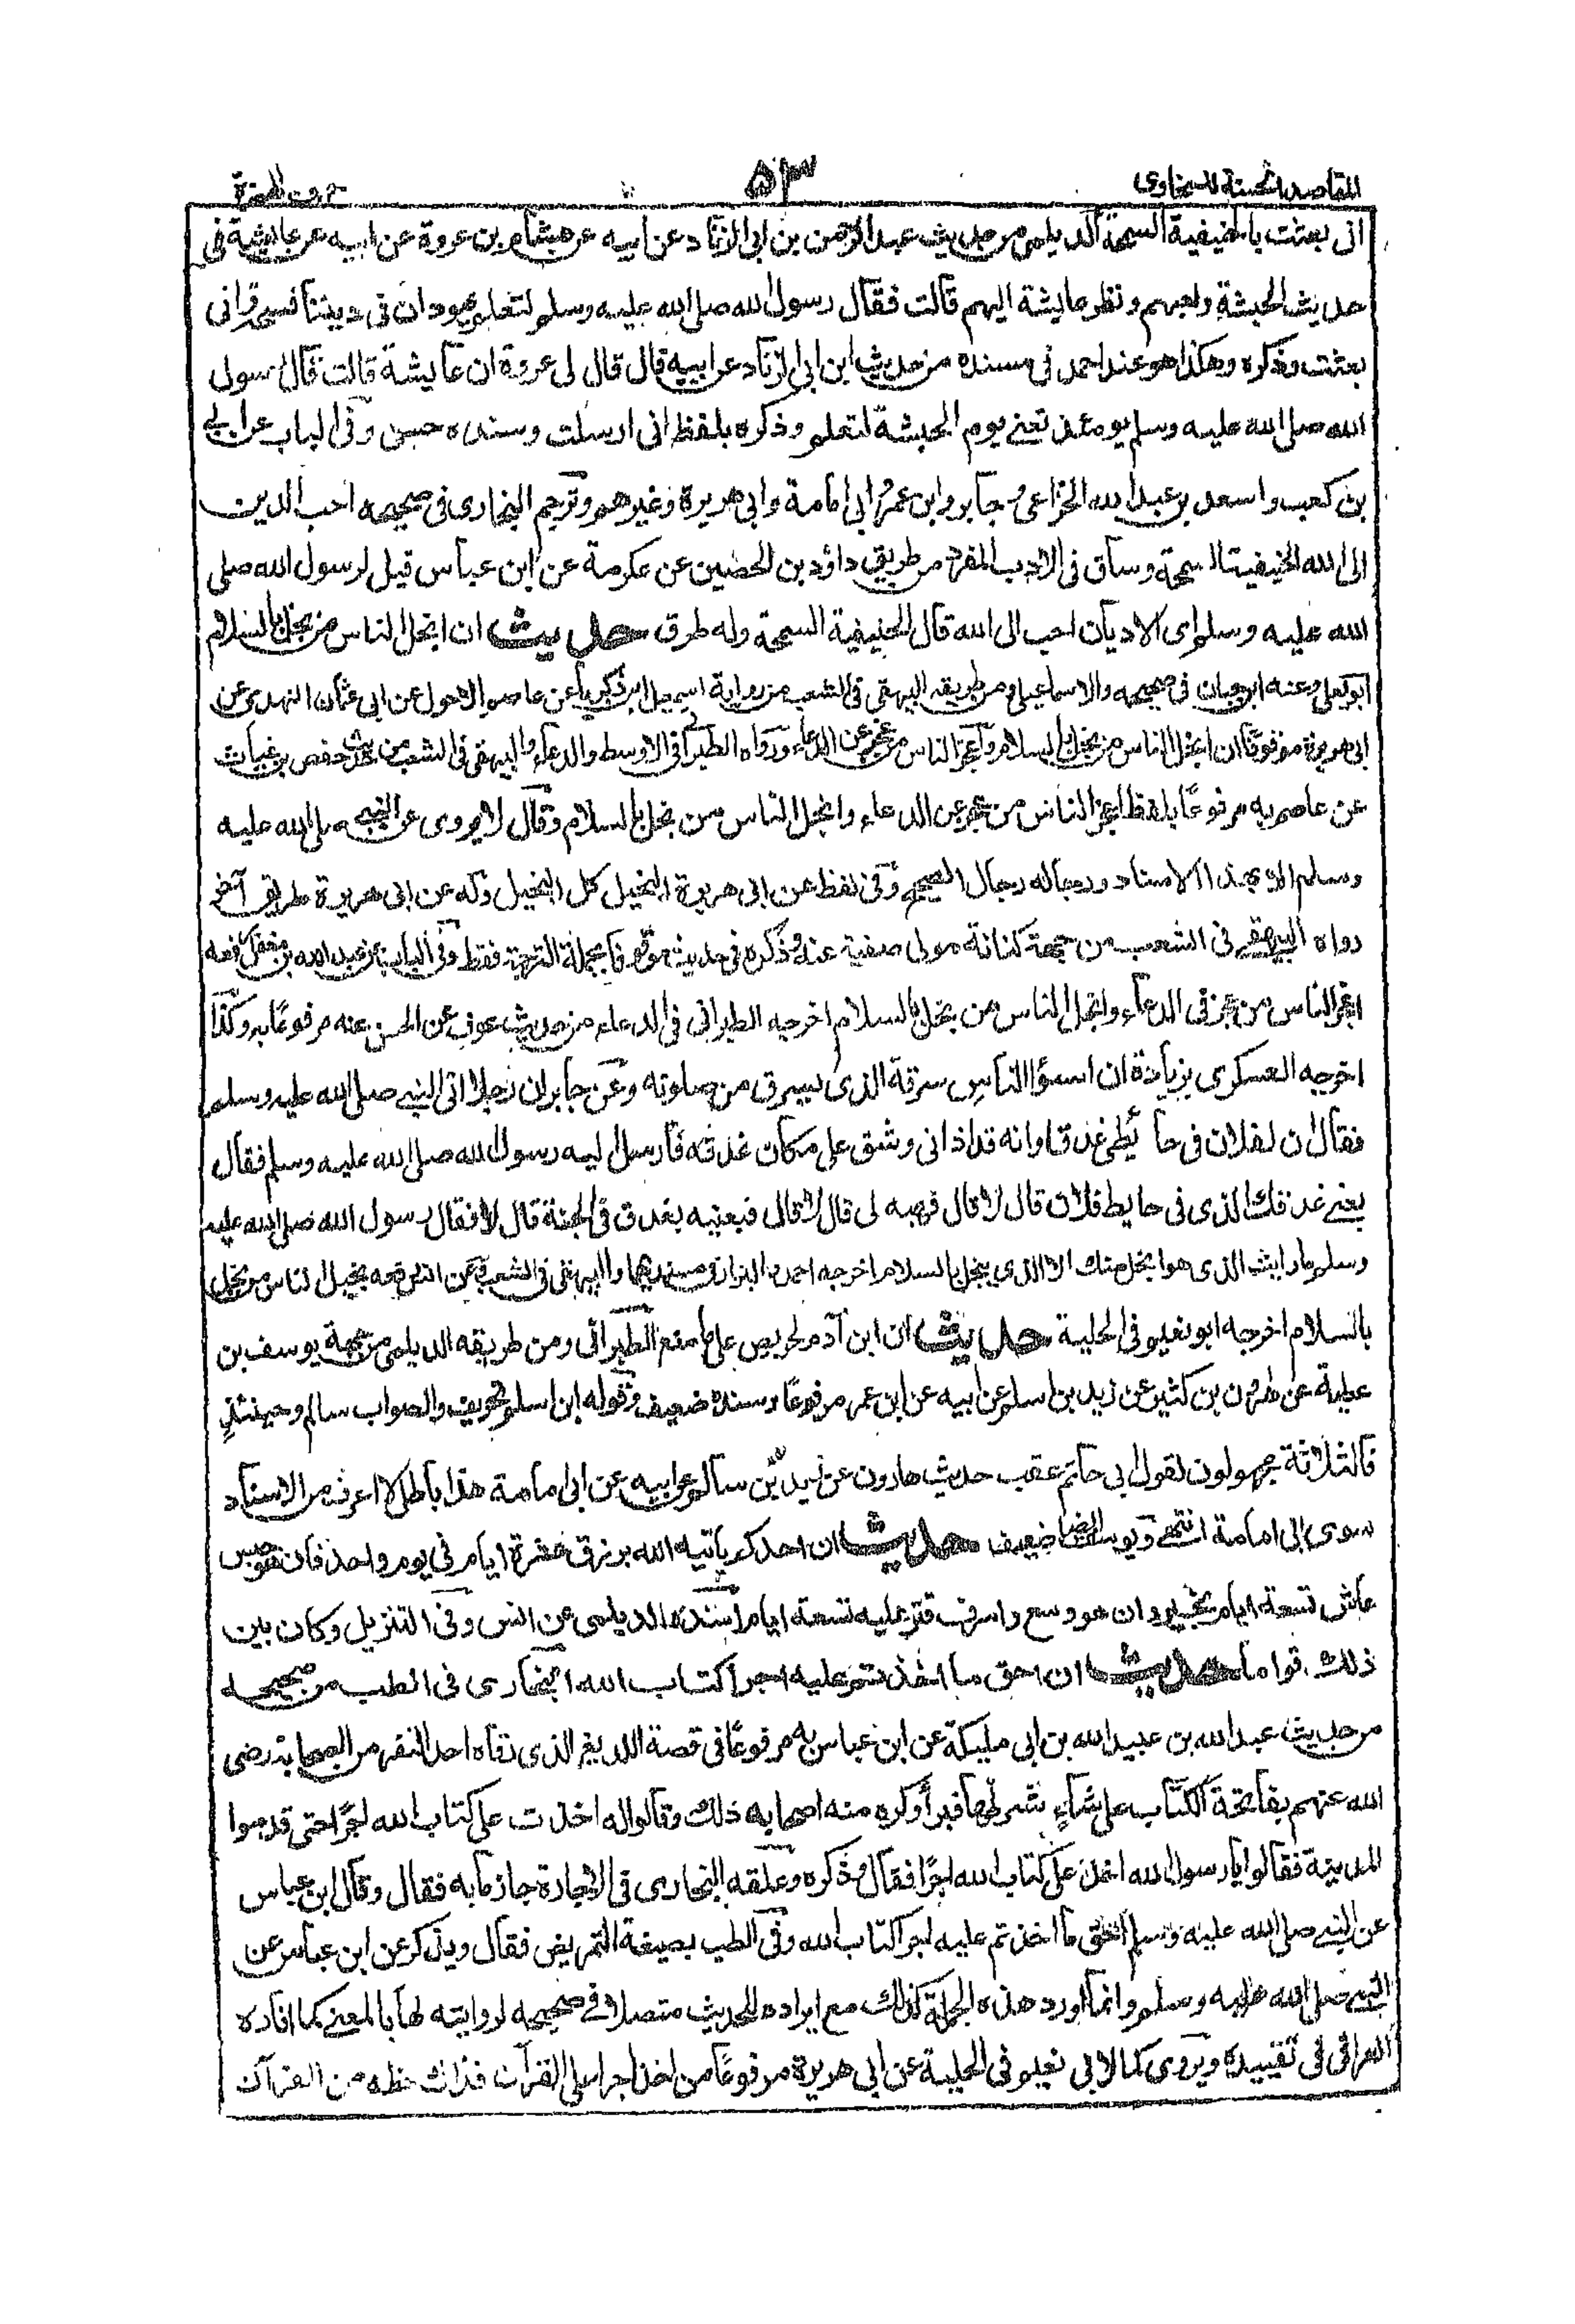 المقاصد الحسنة للسخاوى ٥٣ حرف الهمزة
انى بعثت بالحنيفية السمحة الديلمى من حديث عبد الرحمن بن ابى الزناد عن ابيه عن هشام بن عروة عن ابيه عن عايشة فى
حديث الحبشة ولعبهم ونظر عايشة اليهم قالت فقال رسول الله صلى الله عليه وسلم لتعلم يهود ان فى ديننا فسحة وانى
بعثت وذكره وهكذا هو عند احمد فى مسنده من حديث ابن ابى الزناد عن ابيه قال قال لى عروة ان عايشة قالت قال رسول
الله صلى الله عليه وسلم يومئذ تعنى يوم الحبشة لتعلم وذكره بلفظ انى ارسلت وسنده حسن وفى الباب عن ابى
بن كعب واسعد بن عبد الله الخزاعى وجابر وابن عمر وابى امامة وابى هريرة وغيرهم وترجم البخارى فى صحيحه احب الدين
الى الله الحنيفية السمحة وساق فى الادب المفرد من طريق داؤد بن الحصين عن عكرمة عن ابن عباس قيل لرسول الله صلى
الله عليه وسلم اى الاديان احب الى الله قال الحنيفية السمحة وله طرق حديث ان ابخل الناس من بخل بالسلام
ابو يعلى وعنه ابن حبان فى صحيحه والاسماعيلى ومن طريقه البيهقى فى الشعب من رواية اسمعيل بن زكريا عن عاصم الاحول عن ابى عثمان النهدى عن
ابى هريرة مرفوعًا ان ابخل الناس من بخل بالسلام واعجز الناس من عجز عن الدعاء ورواه الطبرانى فى الاوسط والدعاء والبيهقى فى الشعب من حديث حفص بن غياث
عن عاصم به مرفوعًا بلفظ اعجز الناس من عجز عن الدعاء وابخل الناس من بخل بالسلام وقال لا يروى عن النبى صلى الله عليه
وسلم الا بهذا الاسناد ورجاله رجال الصحيح وفى لفظ عن ابى هريرة البخيل كل البخيل وله عن ابى هريرة طريق آخر
رواه البيهقى فى الشعب من جهة كنانة مولى صفية عنه وذكره فى حديث موقوفا بجملة الترجمة فقط وفى الباب عن عبد الله بن مغفل رفعه
اعجز الناس من عجز فى الدعاء وابخل الناس من بخل بالسلام اخرجه الطبرانى فى الدعاء من حديث عوف عن الحسن عنه مرفوعًا به وكذا
اخرجه العسكرى بزيادة ان اسوأ الناس سرقة الذى يسرق من صلوته وعن جابر ان رجلا اتى النبى صلى الله عليه وسلم
فقال ان لفلان فى حائطى غدقا وانه قد اذانى وشق على مكان غدقه فارسل اليه رسول الله صلى الله عليه وسلم فقال
بعنى غدقك الذى فى حايط فلان قال لا قال فهبه لى قال لا قال فبعنيه بغدق فى الجنة قال لا فقال رسول الله صلى الله عليه
وسلم ما رايت الذى هو ابخل منك الا الذى يبخل بالسلام اخرجه احمد والبزار فى مسنديهما والبيهقى فى الشعب وعن انس رفعه بخيل الناس من بخل
بالسلام اخرجه ابو نعيم فى الحلية حديث ان ابن آدم لحريص على ما منع الطبرانى ومن طريقه الديلمى من جهة يوسف بن
عطية عن هارون بن كثير عن زيد بن اسلم عن ابيه عن ابن عمر مرفوعًا وسنده ضعيف وقوله ابن اسلم تحريف والصواب سالم وحينئذٍ
فالثلاثة مجهولون لقول ابى حاتم عقب حديث هارون عن زيد بن سالم عن ابيه عن ابى امامة هذا باطل لا اعرف من الاسناد
سوى ابى امامة انتهى ويوسف ايضا ضعيف حديث ان احدكم ياتيه الله برزق عشرة ايام فى يوم واحد فان هو حبس
عاش تسعة ايام بخير وان هو وسع واسرف قتر عليه تسعة ايام اسنده الديلمى عن انس وفى التنزيل وكان بين
ذلك قواما حديث ان احق ما اخذتم عليه اجرا كتاب الله البخارى فى الطب من صحيحه
من حديث عبد الله بن عبيد الله بن ابى مليكة عن ابن عباس به مرفوعًا فى قصة اللديغ الذى رقاه احد النفر من الصحابة رضى
الله عنهم بفاتحة الكتاب على شاءٍ شرطها فبرأ وكره منه اصحابه ذلك وقالوا له اخذت على كتاب الله اجرًا حتى قدموا
المدينة فقالوا يا رسول الله اخذ على كتاب الله اجرًا فقال وذكره وعلقه البخارى فى الاجارة جازما به فقال وقال ابن عباس
عن النبى صلى الله عليه وسلم احق ما اخذتم عليه اجرا كتاب الله وفى الطب بصيغة التمريض فقال ويذكر عن ابن عباس عن
النبى صلى الله عليه وسلم وانما اورد هذه الجملة كذلك مع ايراده للحديث متصلا فى صحيحه لروايته لها بالمعنى كما افاده
العراقى فى تقييده ويروى كما لابى نعيم فى الحلية عن ابى هريرة مرفوعًا من اخذ اجرا على القرآن فذاك حظه من القرآن